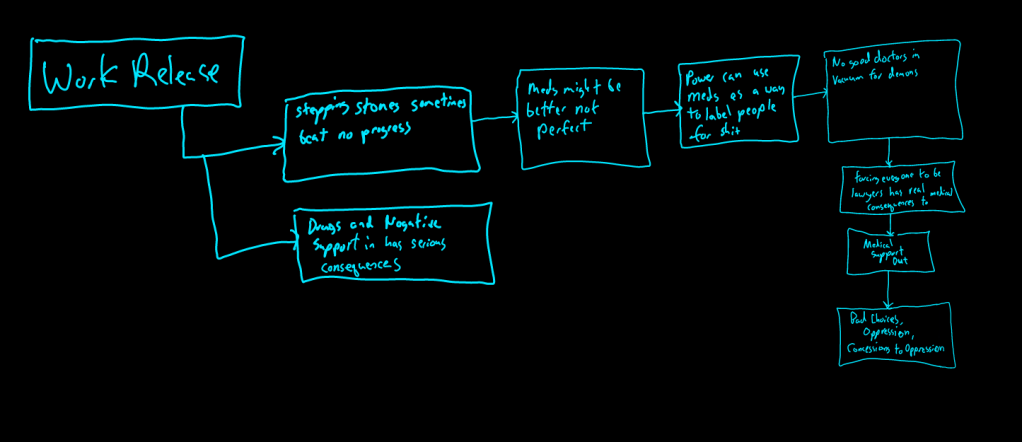 Work Release
stepping stones sometimes
beat no progress
Meds might be
better not
perfect
Power can use
meds as a way
to label people
for shit
No good doctors in
vacuum for demons
forcing everyone to be
lawyers has real medical
consequences to
Medical
Support
Out
Bad Choices,
Oppression,
Concessions to Oppression
Drugs and Negative
support in has serious
consequences